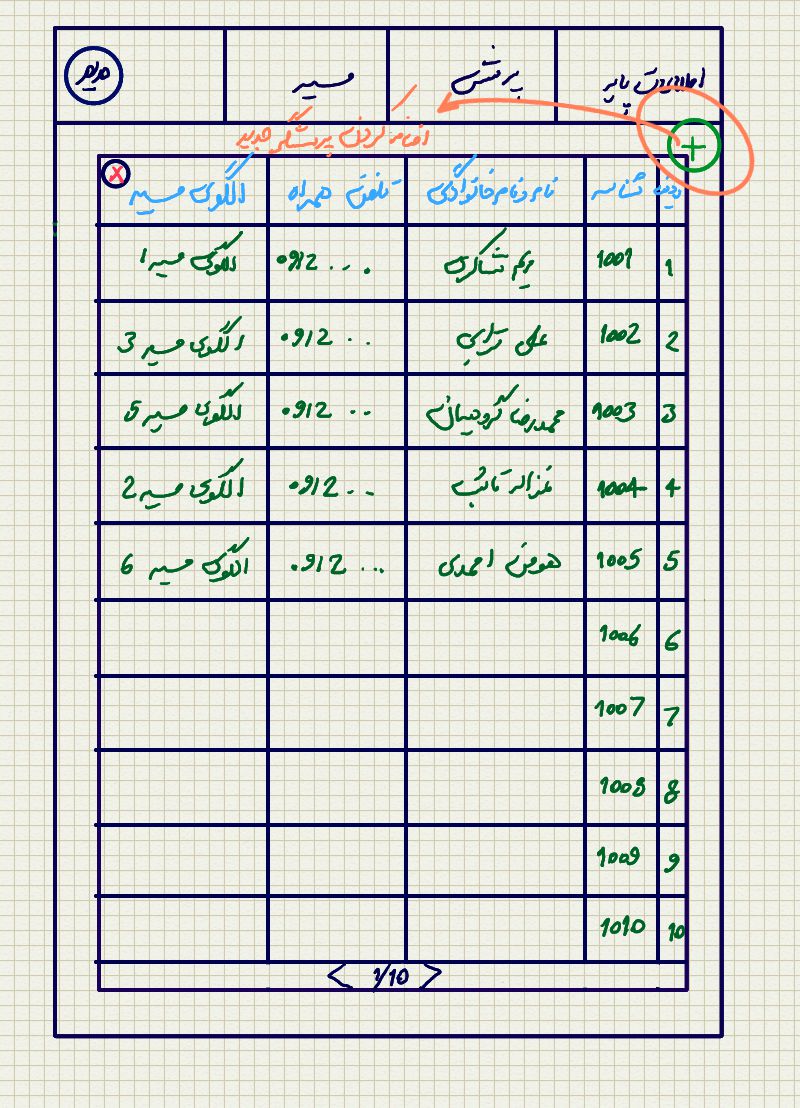 اطلاعات پایه پرسش مسیر مدیر
+
اضافه کردن پرسشگر جدید
ردیف شناسه نام و نام خانوادگی تلفن همراه الگوی مسیر x
1 1001 مریم شاکری 0912 ... الگوی مسیر 1
2 1002 علی ترابی 0912 .. الگوی مسیر 3
3 1003 محمدرضا 0912 .. الگوی مسیر 5
4 1004 غزاله تائب 0912 .. الگوی مسیر 2
5 1005 هومن احمدی 0912 ... الگوی مسیر 6
6 1006
7 1007
8 1008
9 1009
10 1010
< 1/10 >